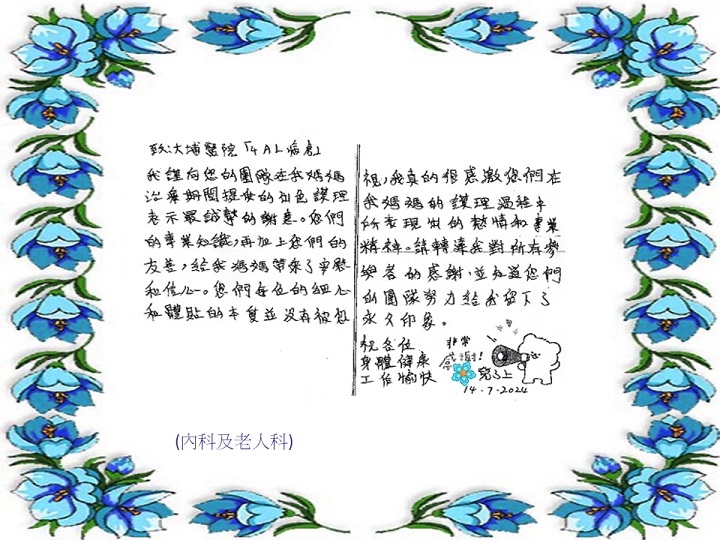 致:大埔醫院「4AL病房」
我謹向您的團隊在我媽媽
治療期間提供的出色護理
表示最誠摯的謝意。您們
的專業知識,再加上您們的
友善,給我媽媽帶來了安慰
和信心。您們每位的細心
和體貼的本質並沒有被忽
視,我真的很感激您們在
我媽媽的護理過程中
所表現出的熱情和專業
精神。請轉達我對所有參
與者的感謝,並知道您們
的團隊努力給我留下了
永久印象。
祝各位
身體健康
工作愉快
非常
感謝!
兒子上
14-7-2024
(內科及老人科)